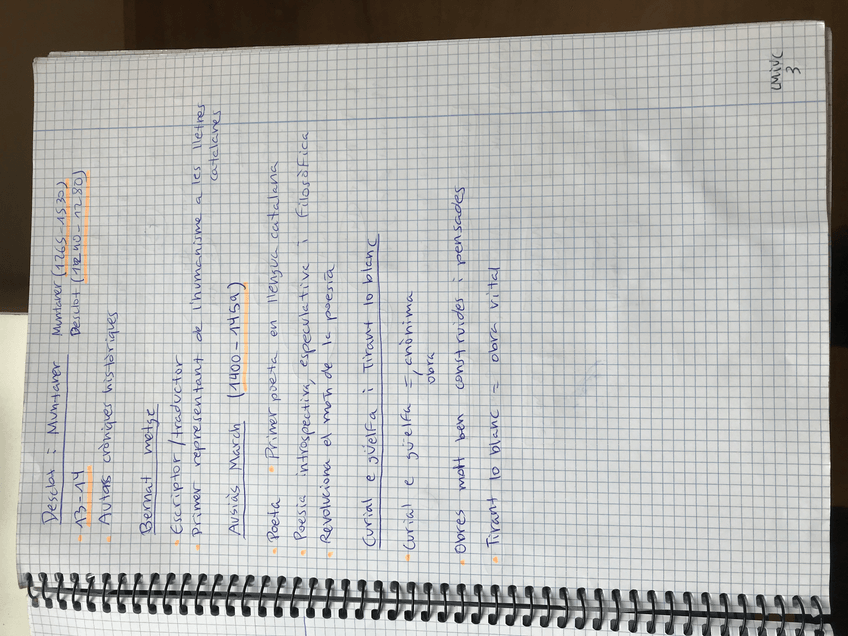 Desclot i Muntaner Muntaner (1265-1330)
Desclot (1240-1280)
- 13-14
- Autors cròniques històriques
Bernat metge
- Escriptor/traductor
- Primer representant de l'humanisme a les lletres
catalanes
Ausiàs March (1400-1459)
- Poeta - Primer poeta en llengua catalana
- Poesia introspectiva, especulativa i filosòfica
- Revoluciona el mon de la poesia
Curial e güelfa i Tirant lo blanc
- Curial e güelfa = anònima
obra
- Obres molt ben construides i pensades
- Tirant lo blanc = obra vital
LMIVC
3